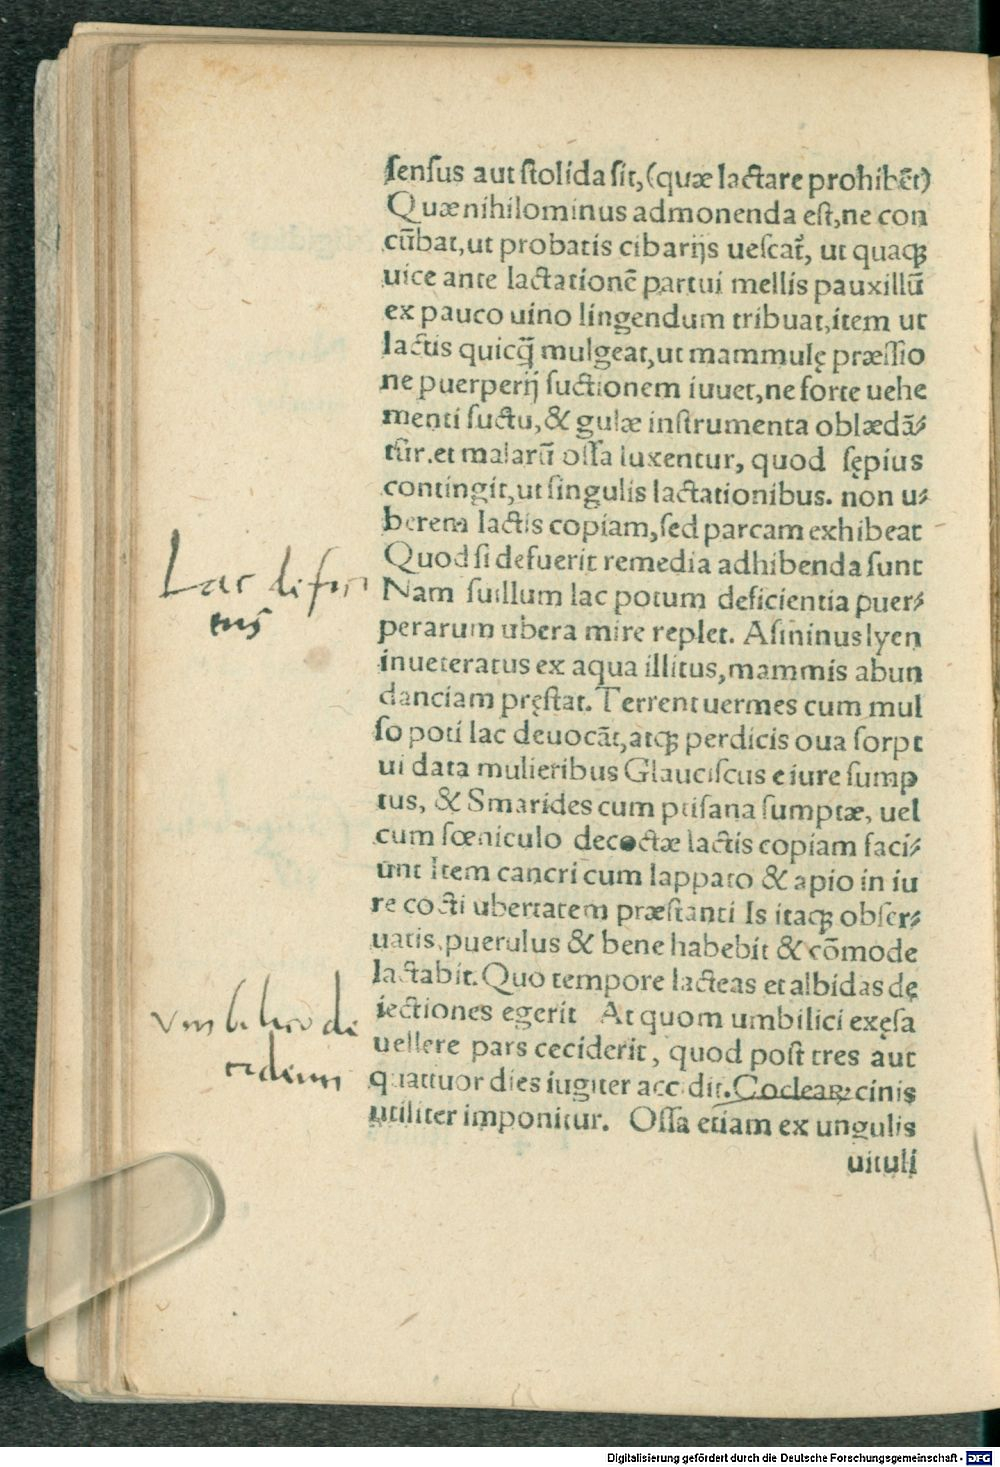 sensus aut stolida sit, (quæ lactare prohibēt)
Quæ nihilominus admonenda est, ne con
cūbat, ut probatis cibarijs uescat᷑, ut quaqꝫ
uice ante lactationē partui mellis pauxillū
ex pauco uino lingendum tribuat, item ut
lactis quicq̄ mulgeat, ut mammulę præssio
ne puerperij suctionem iuuet, ne forte uehe
menti suctu, & gulæ instrumenta oblædā⸗
tur. et malarū ossa luxentur, quod sępius
contingit, ut singulis lactationibus. non u⸗
berem lactis copiam, sed parcam exhibeat
Quod si defuerit remedia adhibenda sunt
Nam suillum lac potum deficientia puer⸗
perarum ubera mire replet. Asininus lyen
inueteratus ex aqua illitus, mammis abun
danciam pręstat. Terrent uermes cum mul
so poti lac deuocāt, atqꝫ perdicis oua sorpt
ui data mulieribus Glauciscus e iure sump
tus, & Smarides cum ptisana sumptæ, uel
cum fœniculo decoctæ lactis copiam faci⸗
unt Item cancri cum lappato & apio in iu
re cocti ubertatem præstanti Is itaqꝫ obser⸗
uatis, puerulus & bene habebit & cōmode
lactabit. Quo tempore lacteas et albidas dę
iectiones egerit At quom umbilici exęsa
uellere pars ceciderit, quod post tres aut
quattuor dies iugiter accidit. Coclearꝝ cinis
utiliter imponitur. Ossa etiam ex ungulis
uituli
Lac
Digitalisierung gefördert durch die Deutsche Forschungsgemeinschaft - DFG